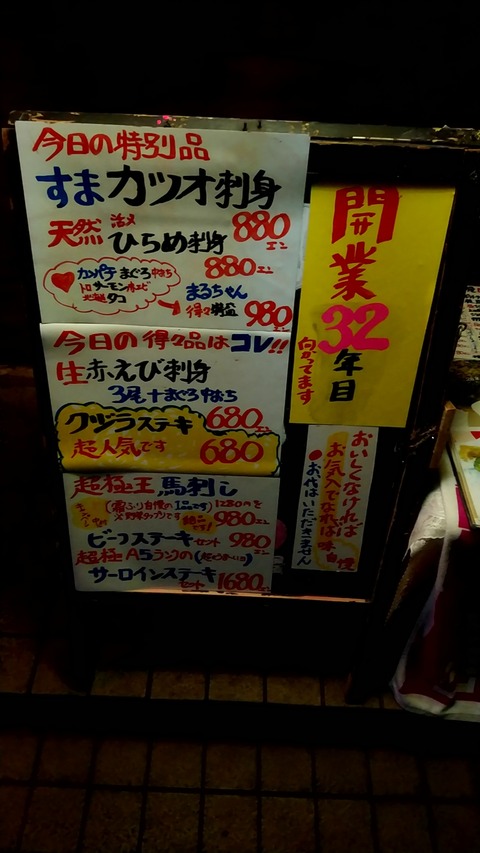 今日の特別品
すまカツオ刺身
880エン
天然 活〆 ひらめ刺身
880エン
カンパチ まぐろ中おち
トロサーモン 本エビ
タコ
まるちゃん
得々 980
今日の得々品はコレ!!
生赤えび刺身
3尾+まぐろ中おち
680エン
クジラステキ
超人気です 680
超極王 馬刺し
(霜ふり自慢の1品です) 1280円を
980エン
ビーフステーキセット 980エン
超極A5ランクの
サーロインステーキセット 1680エン
開業
32
年目
向かってます
おいしくなければ
お気入でなれば 味自慢
●お代はいただきません